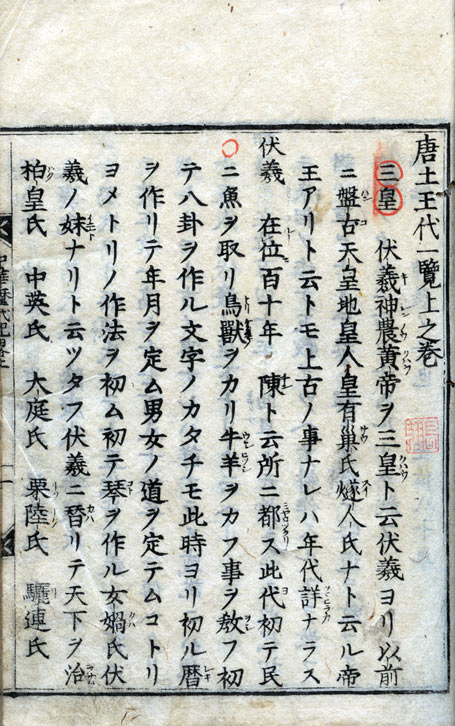 唐土王代一覽上之卷
三皇 伏羲神農黄帝ヲ三皇ト云伏羲ヨリ以前
ニ盤古天皇地皇人皇有巢氏燧人氏ナト云ル帝
王アリト云トモ上古ノ事ナレハ年代詳ナラス
伏羲 在位百十年 陳ト云所ニ都ス此代初テ民
ニ魚ヲ取リ鳥獸ヲカリ牛羊ヲカフ事ヲ敎フ初
テ八卦ヲ作ル文字ノカタチモ此時ヨリ初ル暦
ヲ作リテ年月ヲ定ム男女ノ道ヲ定テムコトリ
ヨメトリノ作法ヲ初ム初テ琴ヲ作ル女媧氏伏
羲ノ妹ナリト云ツタフ伏羲ニ替リテ天下ヲ治
柏皇氏 中英氏 大庭氏 栗陸氏 驪連氏
中華歴代